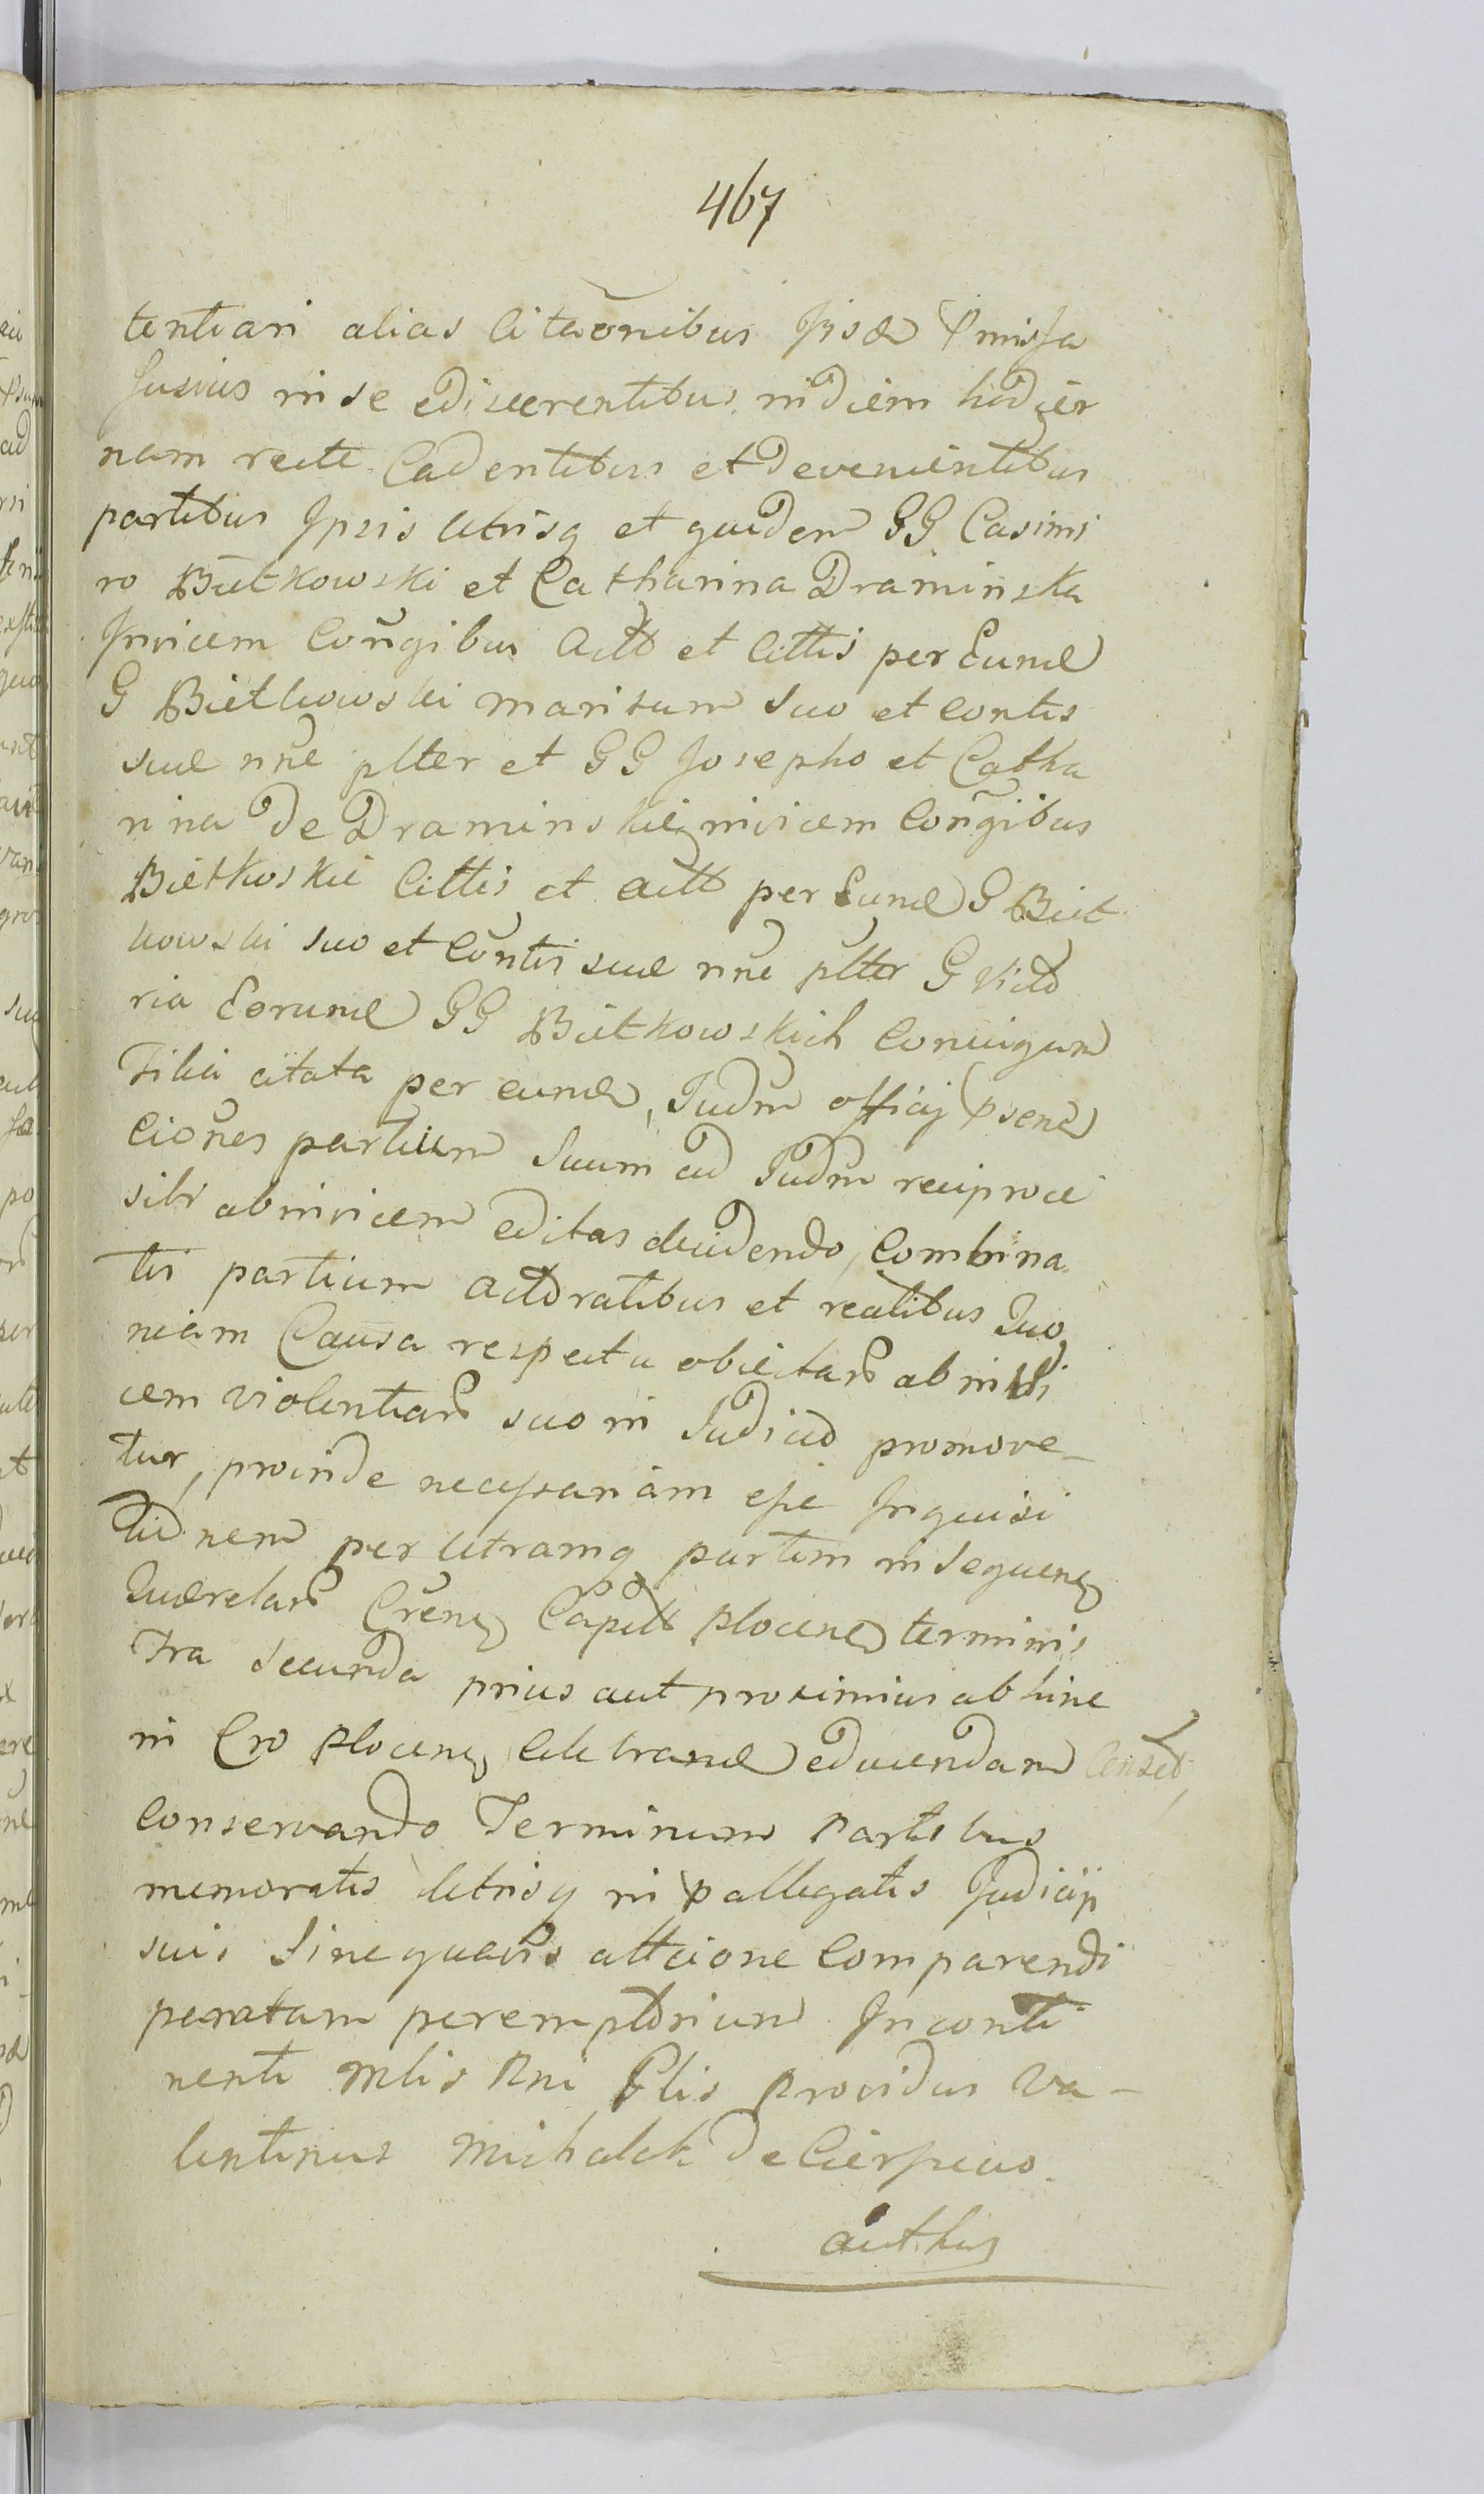 467
tentiari alias Citaõnibus Iisd p̃missa
fusius in se edisserentibus in diem hodier
nam recte Cadentibus et devenientibus
partibus Ipsis Utrisq et quidem GG Casimi
ro Bietkowski et Catharina Draminska
Invicem Coñgibus Actt et Cittis per Eund
G Bietkowski maritum suo et Contis
suae nñe pltter et GG Josepho et Catha
rina de Draminskie invicem Coñgibus
Bietkoskie Cittis et actt per Eund G Biet
kowski suo et Contis suae nñe pltter G Victo
ria Eorund GG Bietkowskich Coniugum
Filia citata per eund, Iudm officij p̃sens
Ciones partium Suum ad Iudm reciproce
sibi ab invicem editas decidendo, Combina
tis partium actoratibus et reatibus Quo
niam Causa respectu obiectarũ ab invi
cem violentiarũ suo in Iudicio promove_
tur, proinde necessariam esse Inquisi
tionem per Utramq partem in Sequenq
Querelarũ Crenq Capitt plocenq terminis
tra secunda prius aut proximius abhinc
in Cro plocenq Celebrand educendam Censet,
Conservando Terminum partibus
memoratis Utrisq in p̃allegatis Iudicijs
suis Sine quavis attcione Comparendi
peratam peremptorium Inconti
nenti Mlis Rni Glis providus Va_
lentinus Michalak de Cierpiewo
authus